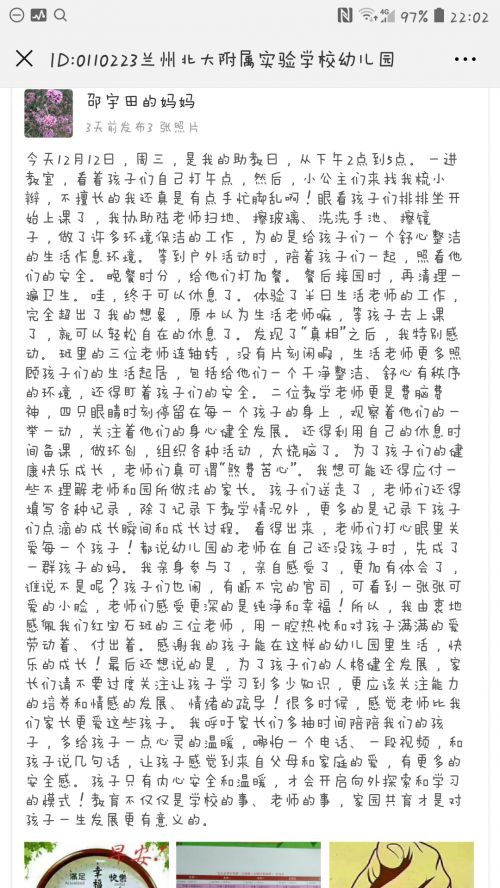 97% 22:02
ID:0110223兰州北大附属实验学校幼儿园
邵宇田的妈妈
3天前发布3 张照片
今天12月12日，周三，是我的助教日，从下午2点到5点。一进
教室，看着孩子们自己打午点，然后，小公主们来找我梳小
辫，不擅长的我还真是有点手忙脚乱啊！眼看孩子们排排坐开
始上课了，我协助陆老师扫地、擦玻璃、洗洗手池、擦镜
子，做了许多环境保洁的工作，为的是给孩子们一个舒心整洁
的生活作息环境。等到户外活动时，陪着孩子们一起，照看他
们的安全。晚餐时分，给他们打加餐。餐后接园时，再清理一
遍卫生。哇，终于可以休息了。体验了半日生活老师的工作，
完全超出了我的想象，原本以为生活老师嘛，等孩子去上课
了，就可以轻松自在的休息了。发现了“真相”之后，我特别感
动。班里的三位老师连轴转，没有片刻闲暇，生活老师更多照
顾孩子们的生活起居，包括给他们一个干净整洁、舒心有秩序
的环境，还得盯着孩子们的安全。二位教学老师更是费脑费
神，四只眼睛时刻停留在每一个孩子的身上，观察着他们的一
举一动，关注着他们的身心健全发展。还得利用自己的休息时
间备课，做环创，组织各种活动，太烧脑了。为了孩子们的健
康快乐成长，老师们真可谓“煞费苦心”。我想可能还得应付一
些不理解老师和园所做法的家长。孩子们送走了，老师们还得
填写各种记录，除了记录下教学情况外，更多的是记录下孩子
们点滴的成长瞬间和成长过程。看得出来，老师们打心眼里关
爱每一个孩子！都说幼儿园的老师在自己还没孩子时，先成了
一群孩子的妈。我亲身参与了，亲自感受了，更加有体会了，
谁说不是呢？孩子们也闹，有断不完的官司，可看到一张张可
爱的小脸，老师们感受更深的是纯净和幸福！所以，我由衷地
感佩我们红宝石班的三位老师，用一腔热忱和对孩子满满的爱
劳动着、付出着。感谢我的孩子能在这样的幼儿园里生活，快
乐的成长！最后还想说的是，为了孩子们的人格健全发展，家
长们请不要过度关注让孩子学习到多少知识，更应该关注能力
的培养和情感的发展、情绪的疏导！很多时候，感觉老师比我
们家长更爱这些孩子。我呼吁家长们多抽时间陪陪我们的孩
子，多给孩子一点心灵的温暖，哪怕一个电话、一段视频，和
孩子说几句话，让孩子感觉到来自父母和家庭的爱，有更多的
安全感。孩子只有内心安全和温暖，才会开启向外探索和学习
的模式！教育不仅仅是学校的事、老师的事，家园共育才是对
孩子一生发展更有意义的。
早安
满足
快乐
幸福